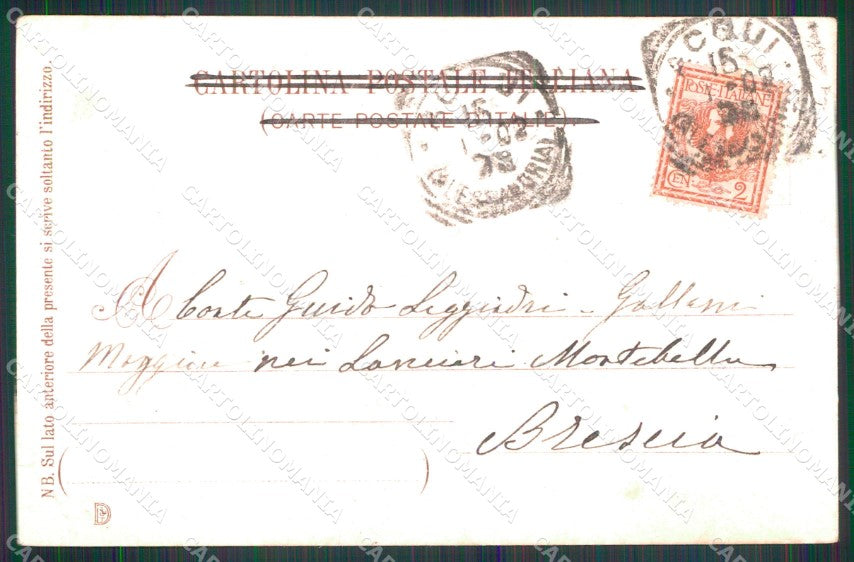 CARTOLINA POSTALE ITALIANA
(CARTE POSTALE D'ITALIE)
ACQUI
15
02
(ALESSANDRIA)
ACQUI
15
02
POSTE ITALIANE
CEN 2
NB. Sul lato anteriore della presente si scrive soltanto l'indirizzo.
A Conte Guido Leggiadri - Gallani
Maggiore nei Lancieri Montebello
Brescia
CARTOLINOMANIA